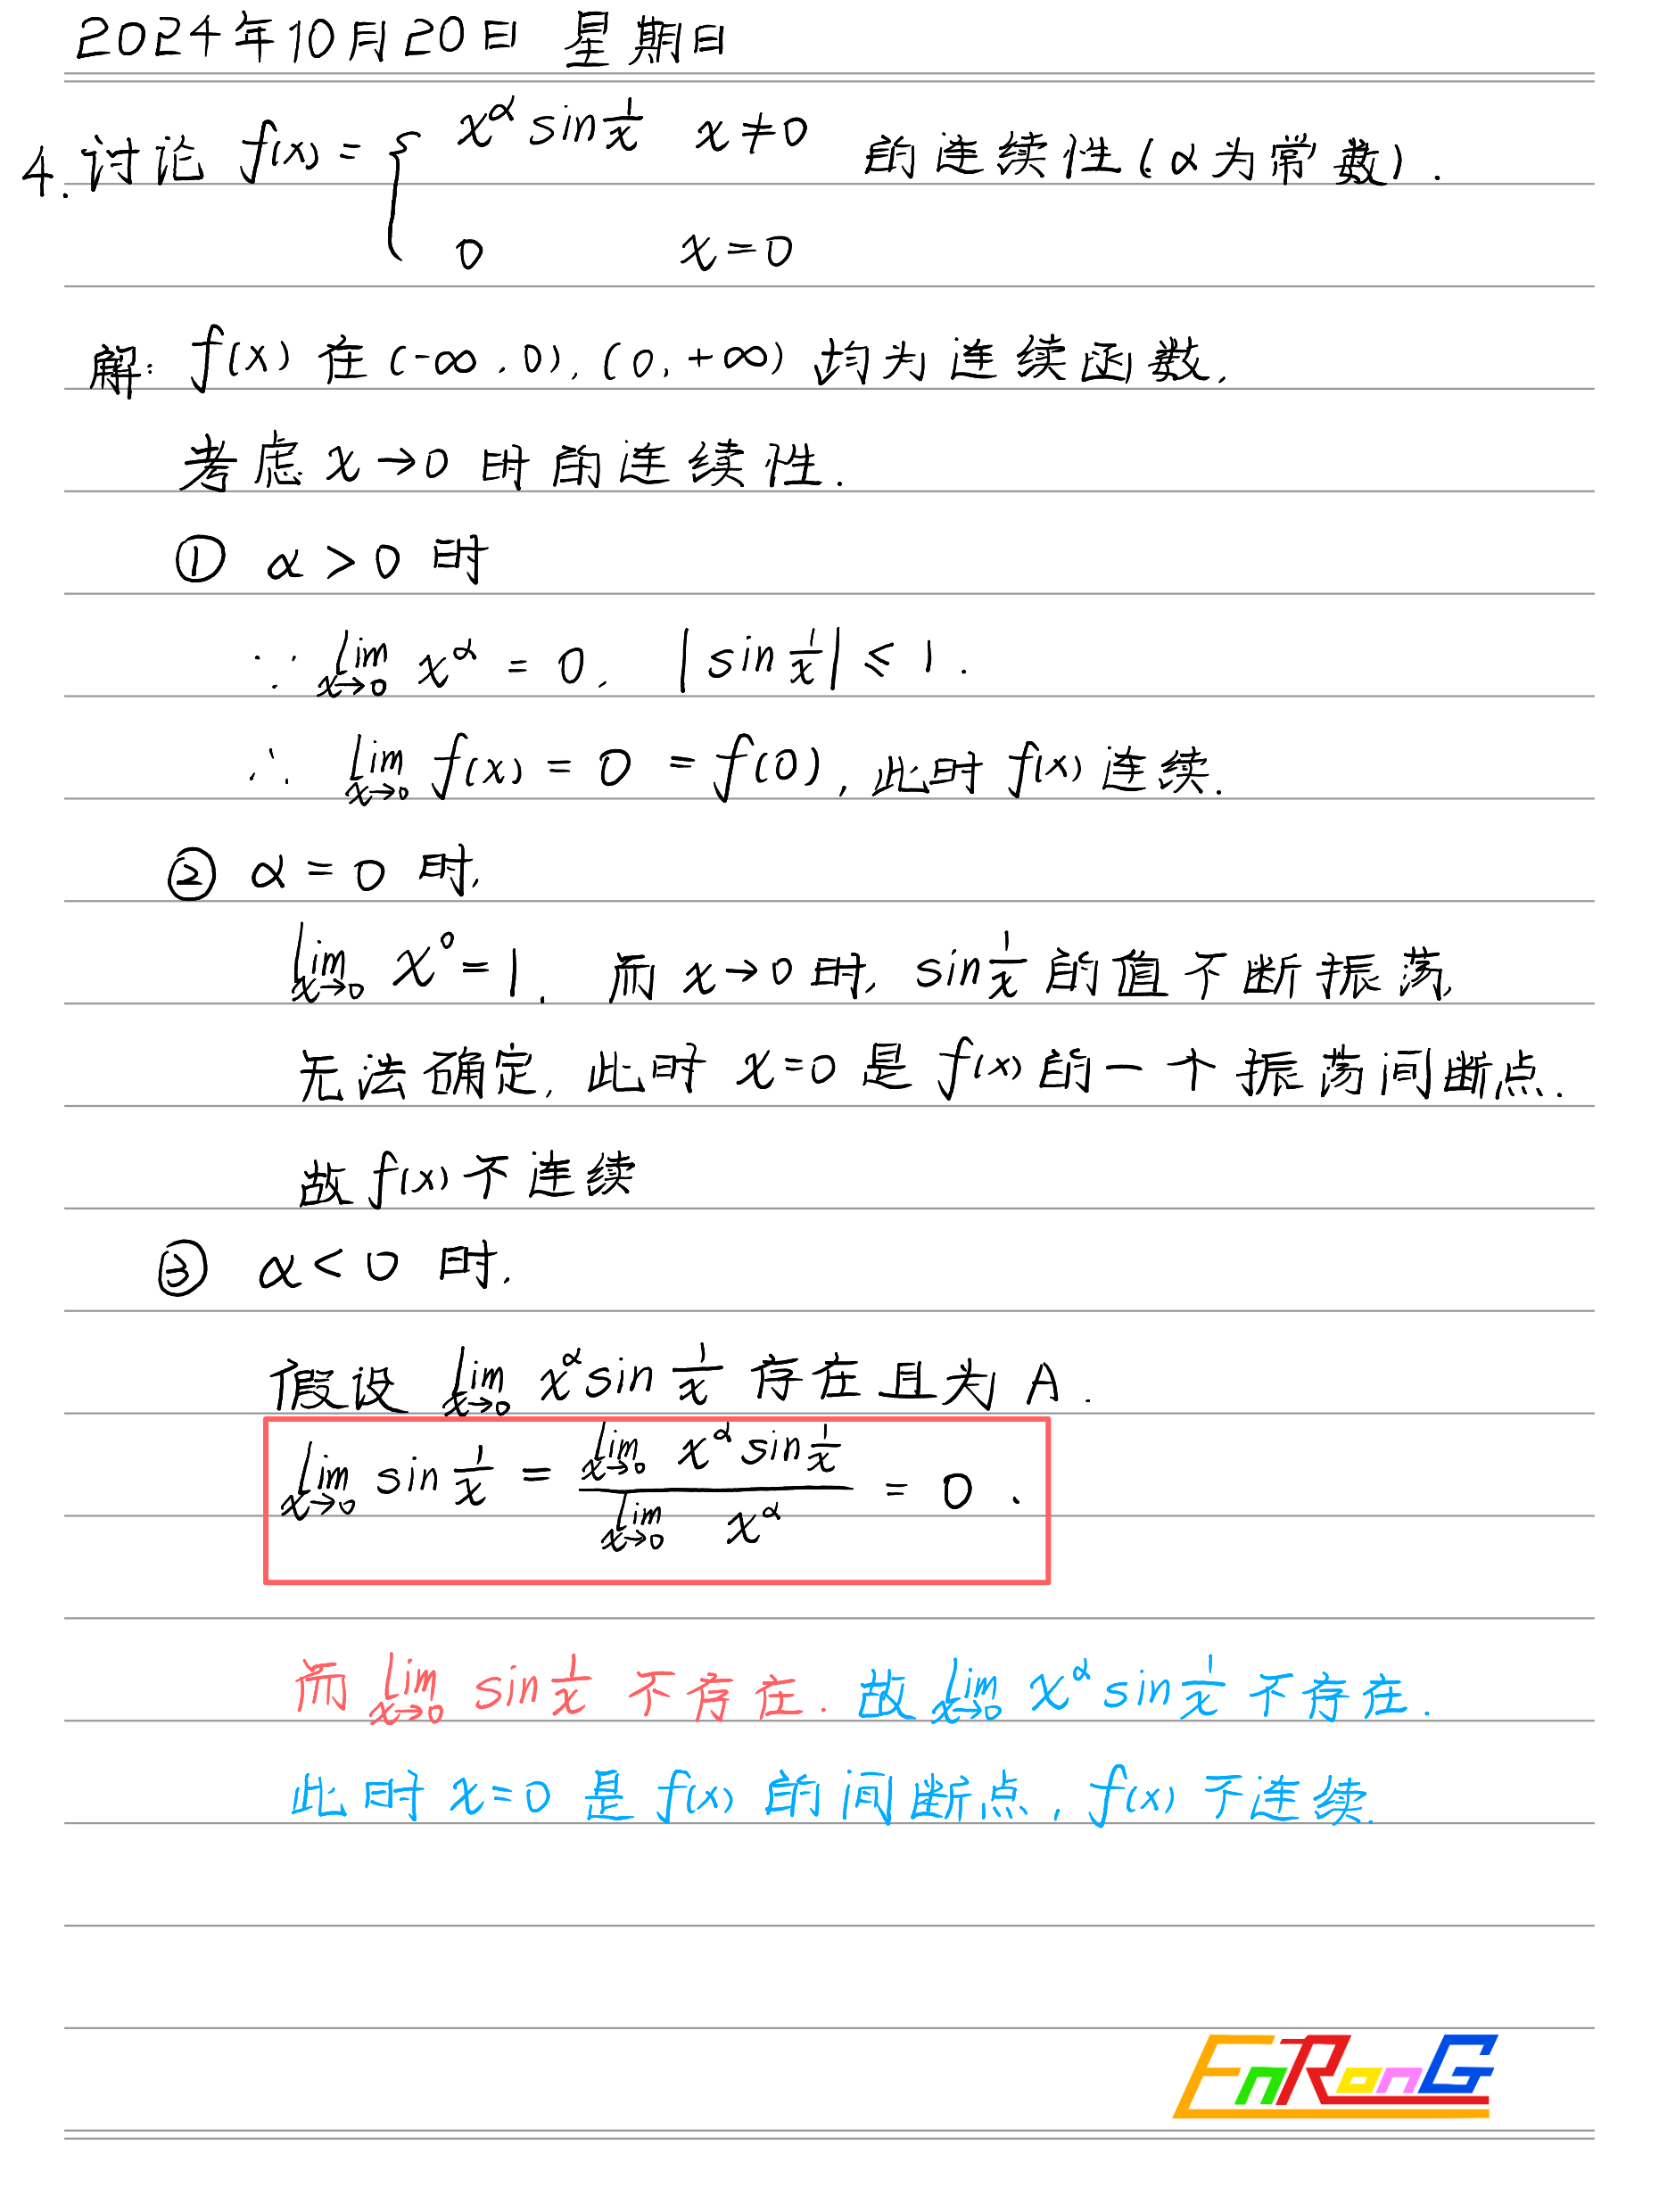 2024年10月20日 星期日
4. 讨论 f(x) = { x^α sin 1/x  x≠0
0  x=0 的连续性(α为常数).
解: f(x) 在 (-∞,0), (0,+∞) 均为连续函数,
考虑 x→0 时的连续性.
① α>0 时
∵ lim_{x→0} x^α = 0, |sin 1/x| ≤ 1.
∴ lim_{x→0} f(x) = 0 = f(0), 此时 f(x) 连续.
② α=0 时,
lim_{x→0} x^0 = 1, 而 x→0 时, sin 1/x 的值不断振荡,
无法确定, 此时 x=0 是 f(x) 的一个振荡间断点.
故 f(x) 不连续
③ α<0 时,
假设 lim_{x→0} x^α sin 1/x 存在且为 A.
lim_{x→0} sin 1/x = (lim_{x→0} x^α sin 1/x) / (lim_{x→0} x^α) = 0.
而 lim_{x→0} sin 1/x 不存在. 故 lim_{x→0} x^α sin 1/x 不存在.
此时 x=0 是 f(x) 的间断点, f(x) 不连续.
EnRonG